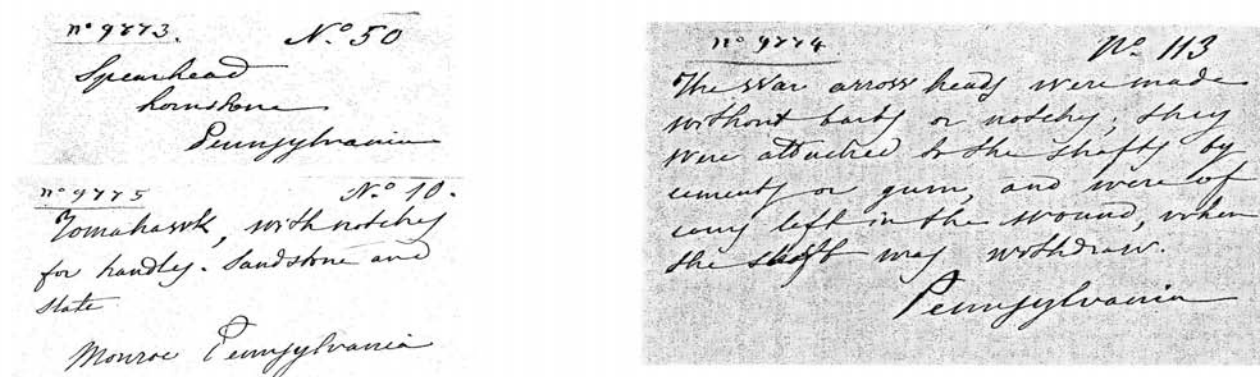 nº 9773. Nº 50
Spearhead
hornstone
Pennsylvania
nº 9775 Nº 10.
Tomahawk, with notches
for handles. Sandstone and
slate
Monroe Pennsylvania
nº 9774 Nº 113
The War arrow heads were made
without barbs or notches; they
were attached to the shafts by
cements or gum, and were of
left in the wound, when
the shaft was withdraw.
Pennsylvania